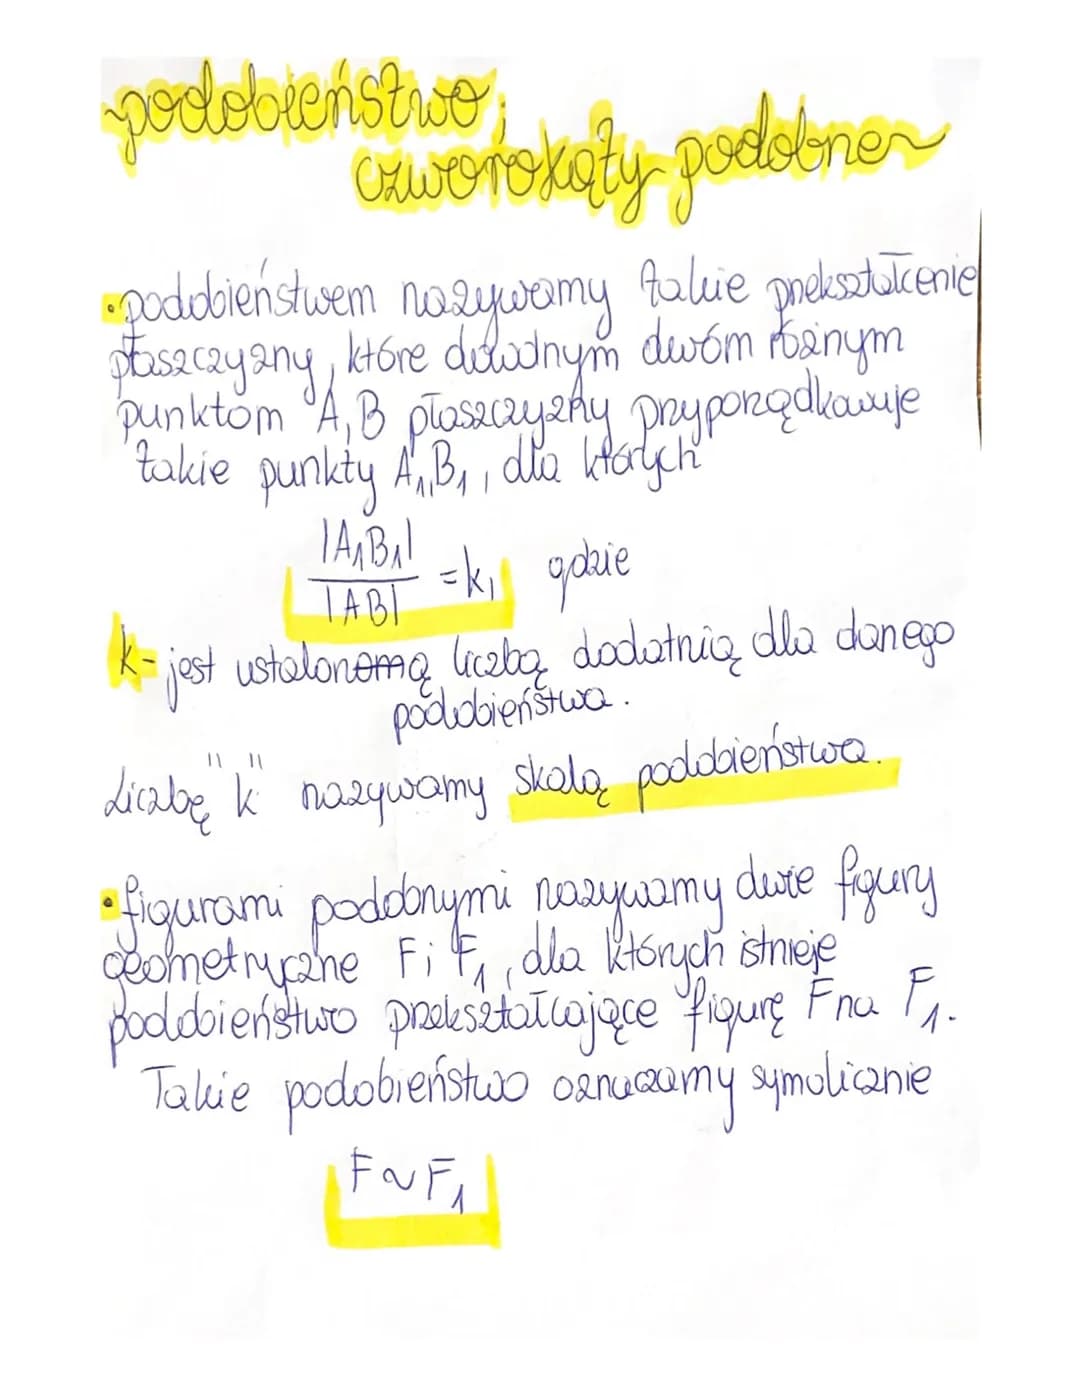 podobieństwo,
czworokąty podobne
• podobieństwem nazywamy takie przekształcenie
płaszczyzny, które dowolnym dwóm różnym
punktom A, B płaszczyzny przyporządkowuje
takie punkty A₁, B₁, dla których
|A₁B₁| / |AB| = k, gdzie
k - jest ustaloną liczbą dodatnią dla danego
podobieństwa.
Liczbę "k" nazywamy skalą podobieństwa.
• figurami podobnymi nazywamy dwie figury
geometryczne F i F₁, dla których istnieje
podobieństwo przekształcające figurę F na F₁.
Takie podobieństwo oznaczamy symolicznie
F ~ F₁